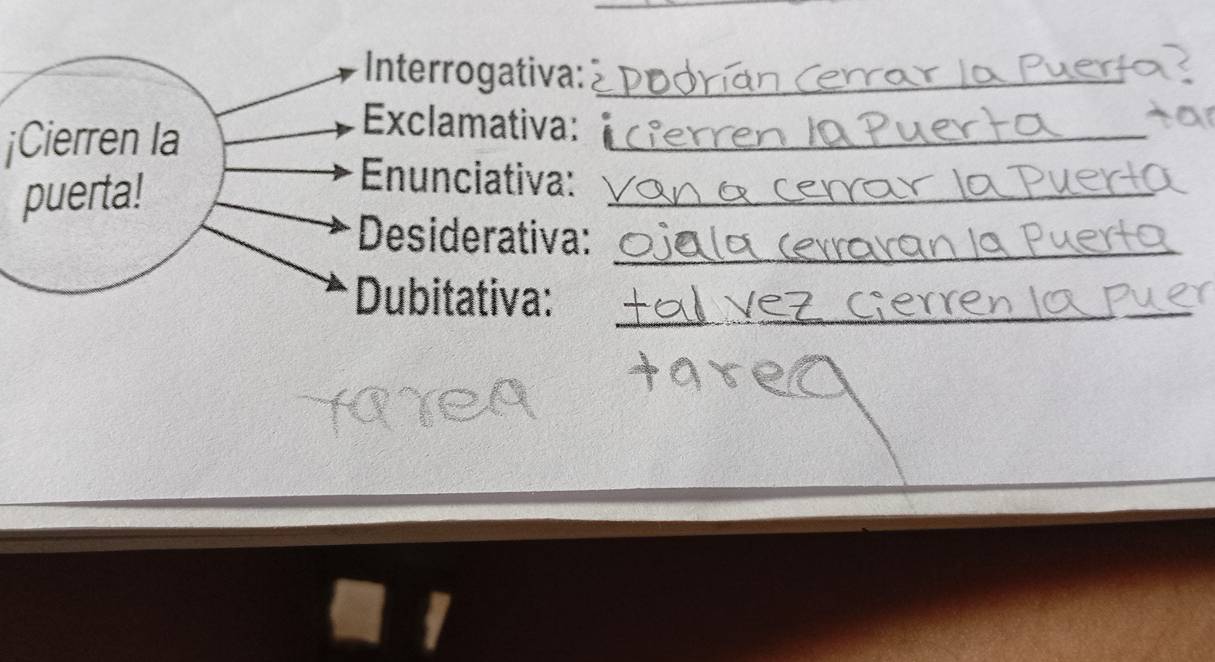 ¡Cierren la
puerta!
Interrogativa: ¿podrían cerrar la puerta?
Exclamativa: ¡cierren la puerta tar
Enunciativa: van a cerrar la puerta
Desiderativa: Ojala cerraran la puerta
Dubitativa: tal vez cierren la puer
tarea
tarea